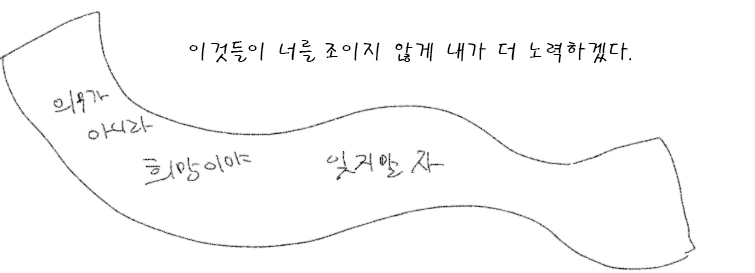 이것들이 너를 조이지 않게 내가 더 노력하겠다.
의무가
아니라
희망이야
잊지말자